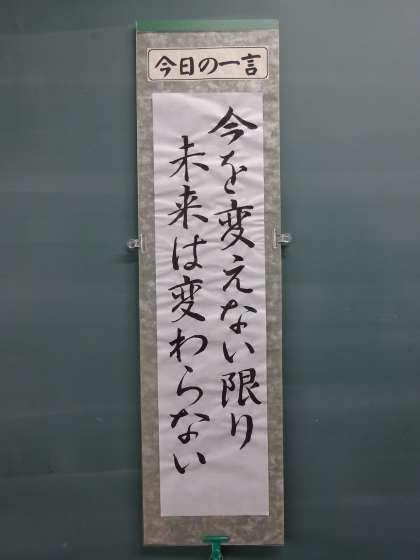 今日の一言
今を変えない限り
未来は変わらない